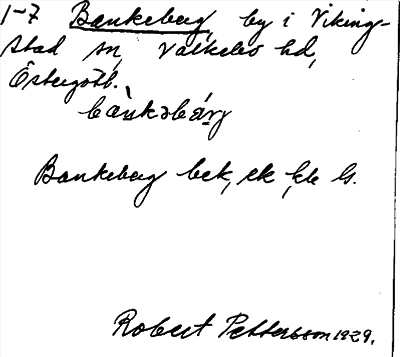 1-7 Bankeberg, by i Viking-
stad sn, Valkebo hd,
Östergötl.
bànkəbärj
Bankeberg bek, ek kk ls.
Robert Pettersson 1929.